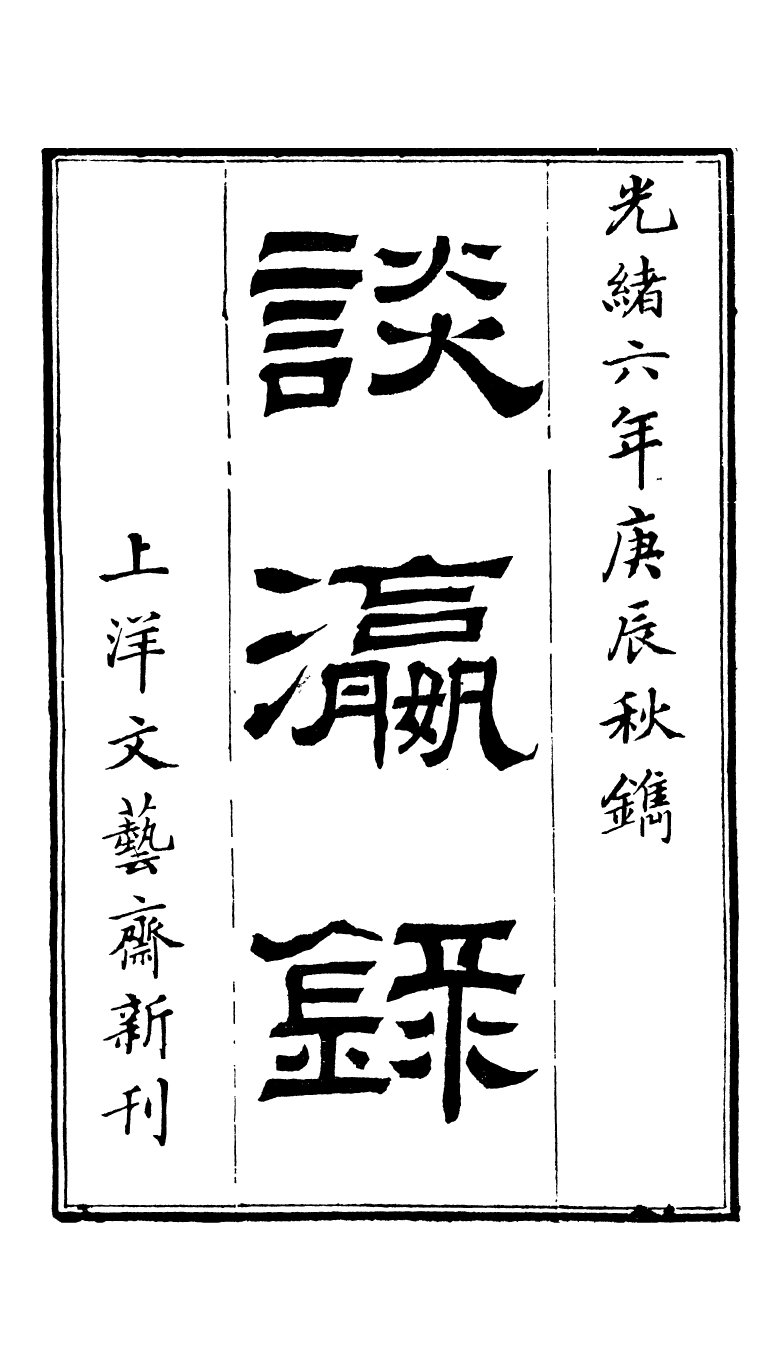 光緒六年庚辰秋鐫
談瀛錄
上洋文藝齋新刊